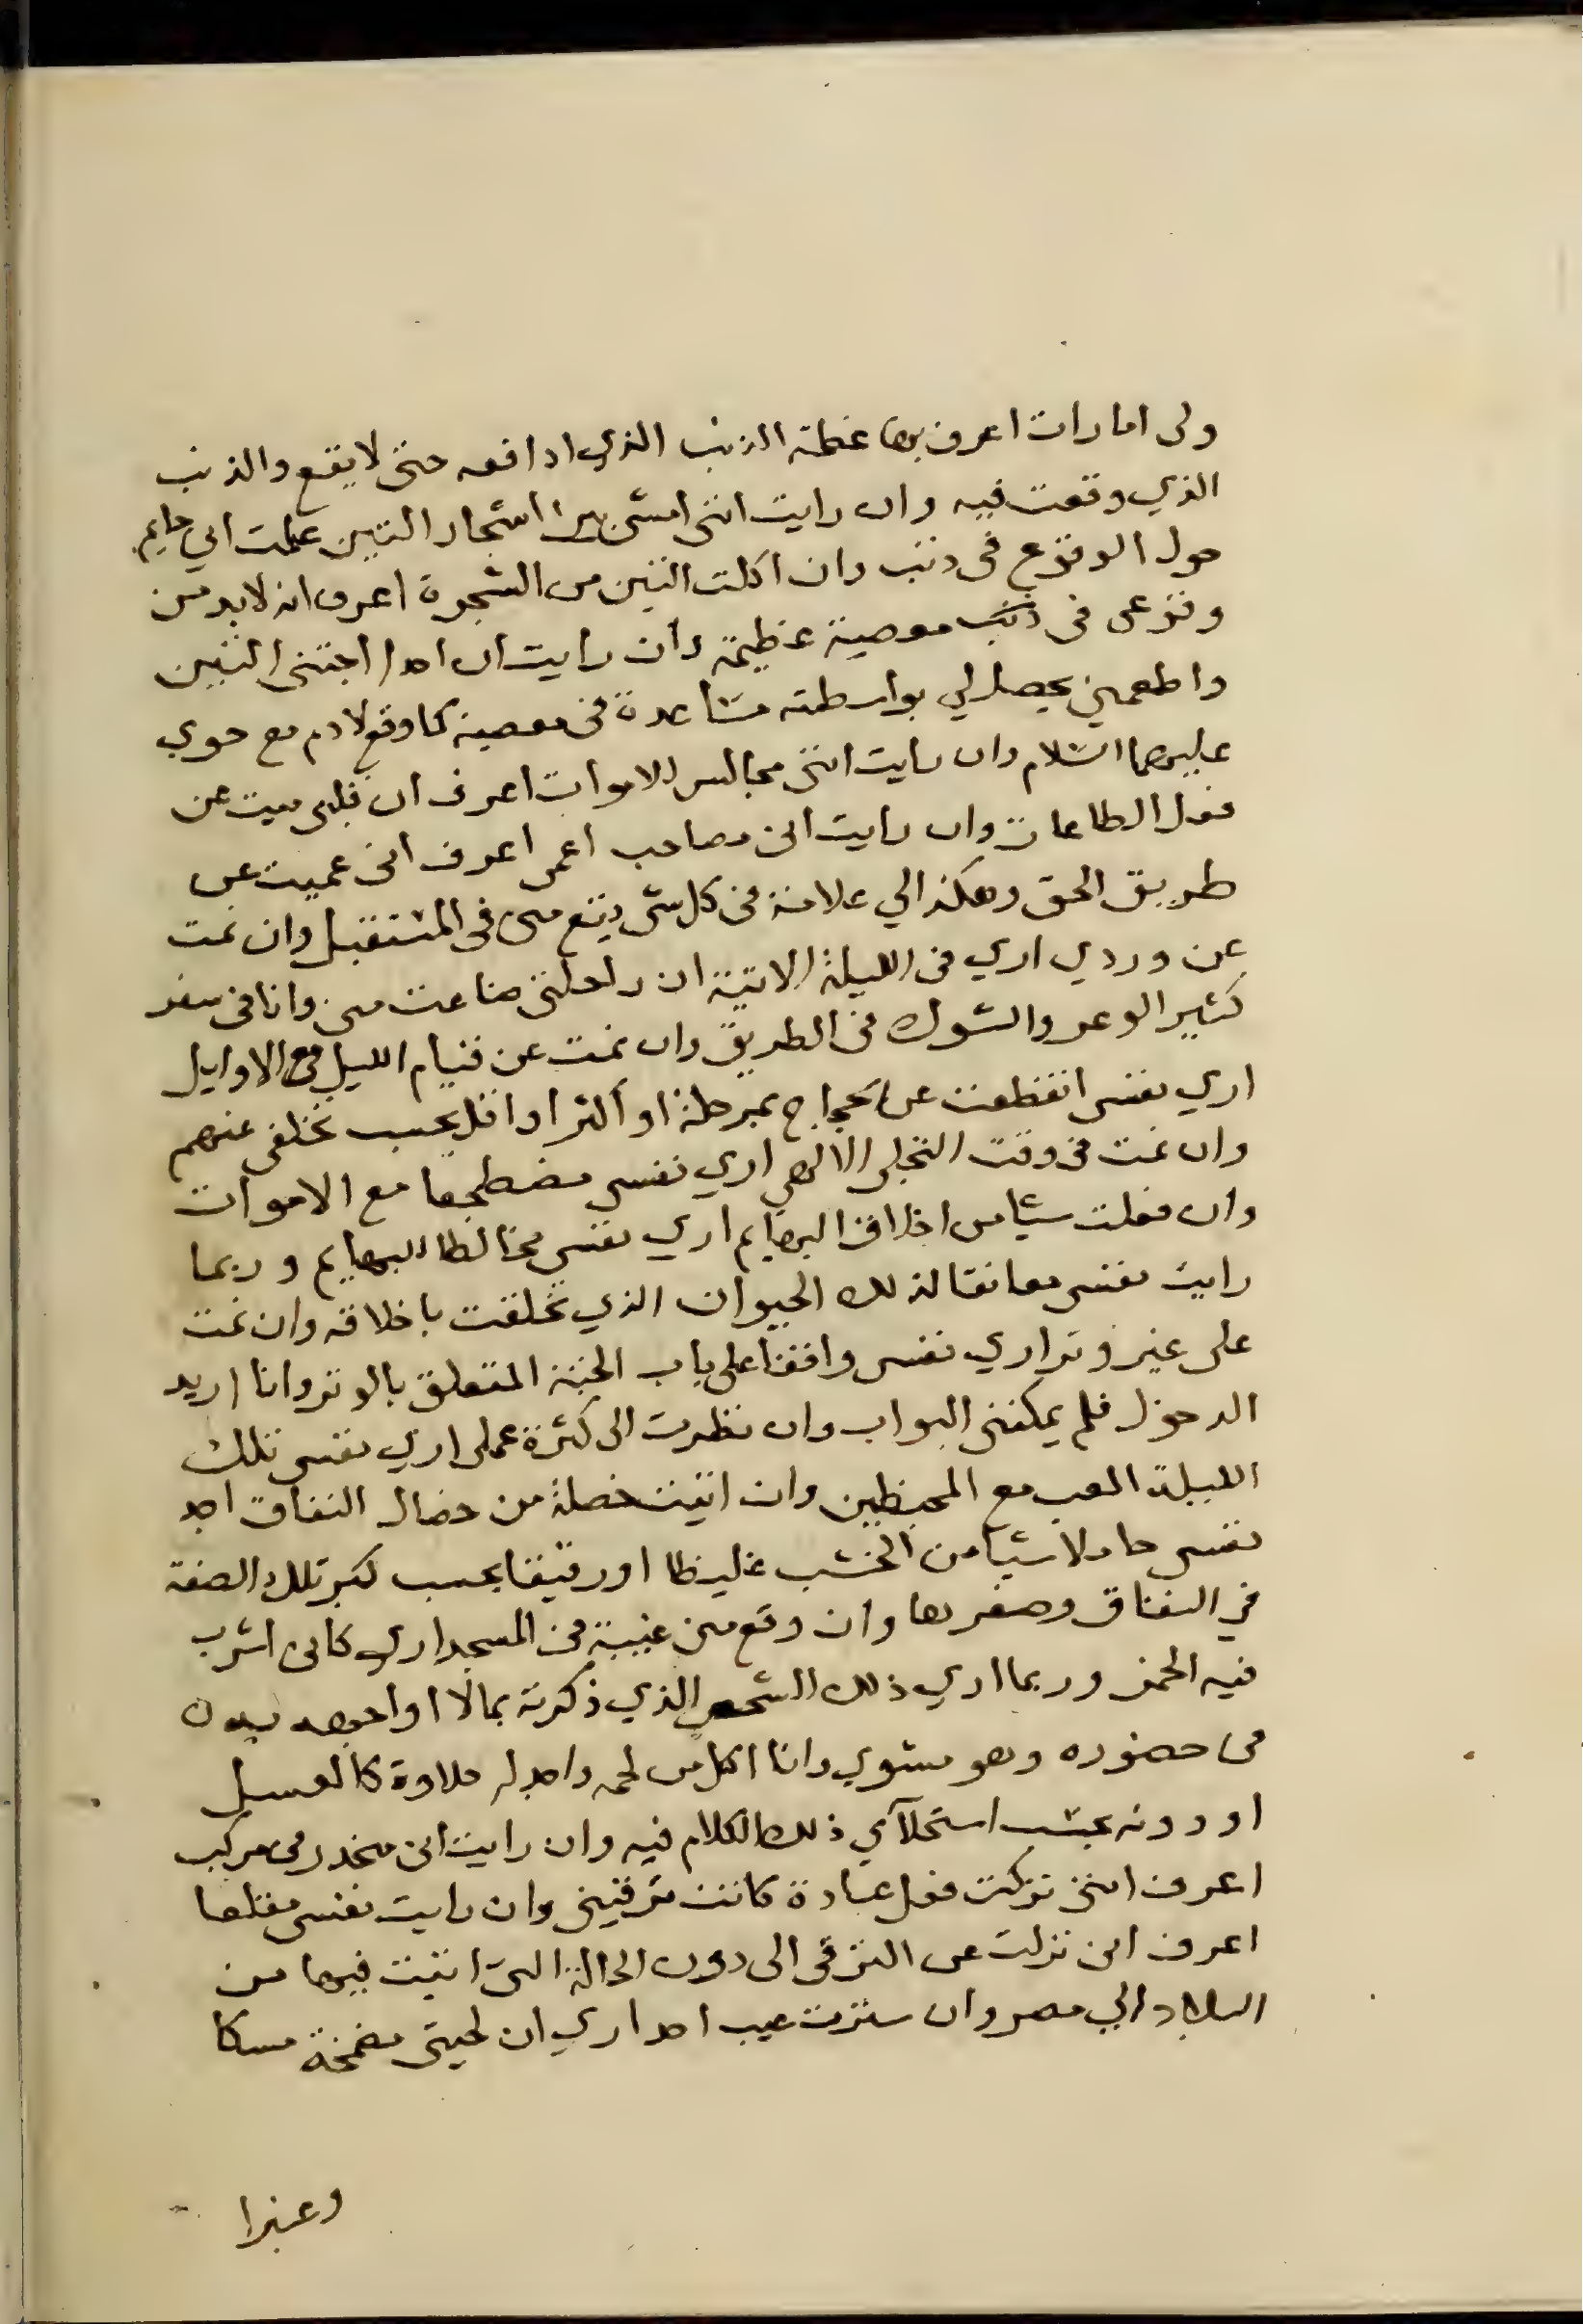 ولى امارات اعرف بها عظمة الذنب الذي ادافعه حتى لا يقع والذنب
الذي وقعت فيه وان رايت انني امشي بين اشجار التين علمت اني حايم
حول الوقوع فى ذنب وان اكلت التين من الشجرة اعرف انه لا بد من
وقوعى فى معصية عظيمة وان رايت ان احدا اجتنى التين
واطعمني يحصل لي بواسطته مساعدة فى معصية كما وقع لادم مع حوي
عليهما السلام وان رايت اننى مجالس للاموات اعرف ان قلبى ميت عن
فعل الطاعات وان رايت انى مصاحب اعمى اعرف انى عميت عن
طريق الحق وهكذا لي علامة فى كل شى يقع منى فى المستقبل وان نمت
عن وردي اري فى الليلة الاتية ان راحلتى ضاعت منى وانا فى سفر
كثير الوعر والشوك فى الطريق وان نمت عن قيام الليل مع الاوايل
اري نفسى انقطعت عن الحجاج بمرحلة او اكثر او اقل بحسب تخلفى عنهم
وان نمت فى وقت التجلى الالهي اري نفسى مضطجعا مع الاموات
وان فعلت شيا من اخلاق البهايم اري نفسى مخالطا للبهايم وربما
رايت نفسى معانقا لذلك الحيوان الذي تخلقت باخلاقه وان نمت
على غير وتر اري نفسى واقفا على باب الجنة المتعلق بالوتر وانا اريد
الدخول فلم يمكننى البواب وان نظرت الى كثرة عملى اري نفسى تلك
الليلة العب مع المحبظين وان اتيت خصلة من خصال النفاق اجد
نفسى حاملا شيا من الخشب غليظا او رقيقا بحسب كبر تلك الصفة
في النفاق وصغرها وان وقع منى غيبة فى المسجد اري كانى اشرب
فيه الخمر وربما اري ذلك الشخص الذي ذكرته بما لا اواجهه به
فى حضوره وهو مشوي وانا اكل من لحمه واجد له حلاوة كالعسل
او دونه بحسب استحلآي ذلك الكلام فيه وان رايت انى منحدر فى مركب
اعرف اننى تركت فعل عبادة كانت ترقينى وان رايت نفسى مقلعا
اعرف انى نزلت عن الترقى الى دون الحالة التى اتيت فيها من
البلاد الي مصر وان سترت عيب احد اري ان لحيتى مضمخة مسكا
وعنبرا